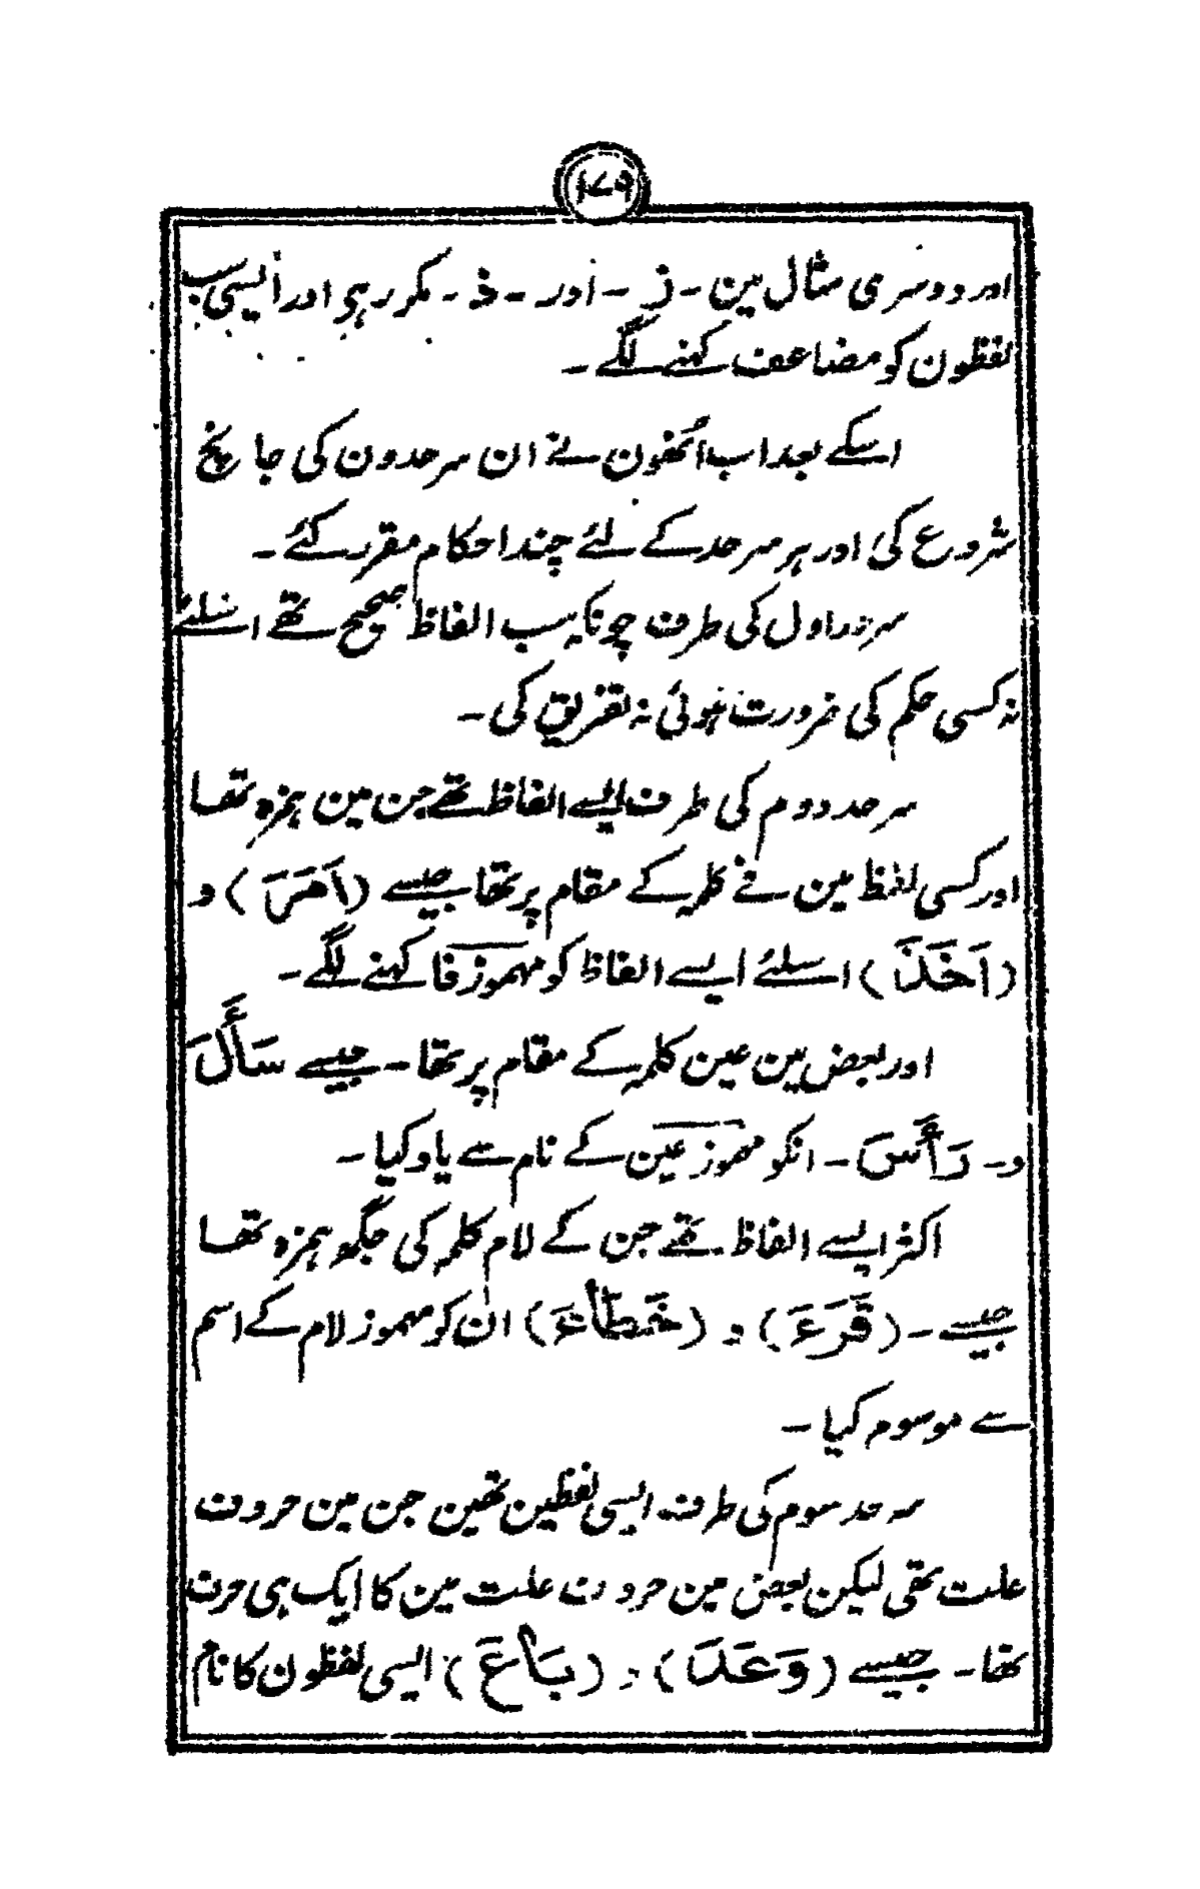 ۱۷۹
اور دوسری مثال مین - ز - اور - ذ - مکرر ہی اور ایسی سب
لفظون کو مضاعف کہنے لگے -
اسکے بعد اب اُنھون نے ان سرحدون کی جانچ
شروع کی اور ہر سرحد کے لئے چند احکام مقرر کئے -
سرحد اول کی طرف چونکہ سب الفاظ صحیح تھے اسلئے
نہ کسی حکم کی ضرورت ہوئی نہ تفریق کی -
سرحد دوم کی طرف ایسے الفاظ تھے جن مین ہمزہ تھا
اور کسی لفظ مین فے کلمہ کے مقام پر تھا جیسے (اَمَرَ) و
(اَخَذَ) اسلئے ایسے الفاظ کو مہموز فا کہنے لگے -
اور بعض مین عین کلمہ کے مقام پر تھا - جیسے سَأَلَ
و - رَأَسَ - انکو مہموز عین کے نام سے یاد کیا -
اکثر ایسے الفاظ تھے جن کے لام کلمہ کی جگہ ہمزہ تھا
جیسے - (قَرَءَ) و (خَطَاءَ) ان کو مہموز لام کے اسم
سے موسوم کیا -
سرحد سوم کی طرف ایسی لفظین تھین جن مین حروف
علت تھی لیکن بعض مین حروف علت مین کا ایک ہی حرف
تھا - جیسے (وَعَدَ) و (بَاعَ) ایسی لفظون کا نام